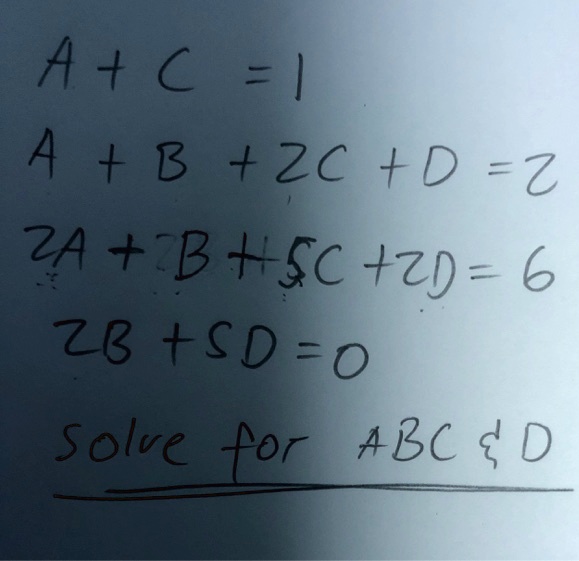 A + C = 1
A + B + 2C + D = 2
2A + B + 5C + 2D = 6
2B + 5D = 0
Solve for ABC & D